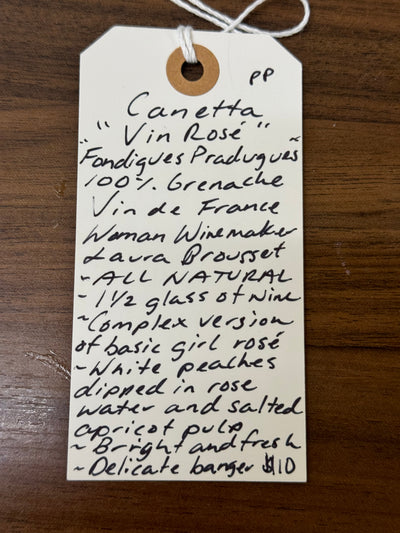 PP
Canetta
"Vin Rosé"
"Fondigues Pradugues"
100% Grenache
Vin de France
Woman Winemaker
Laura Brousset
~ALL NATURAL
~1½ glass of wine
~Complex version
of basic girl rosé
~White peaches
dipped in rose
water and salted
apricot pulp
~Bright and fresh
~Delicate banger $10